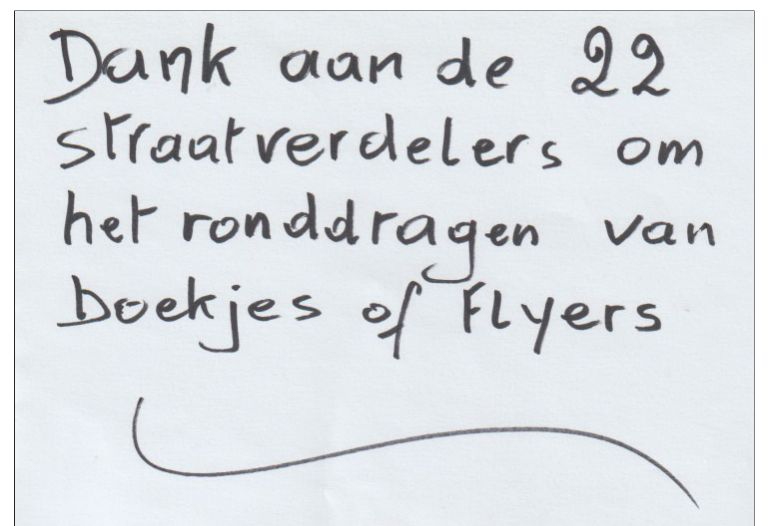 Dank aan de 22
straatverdelers om
het ronddragen van
boekjes of Flyers